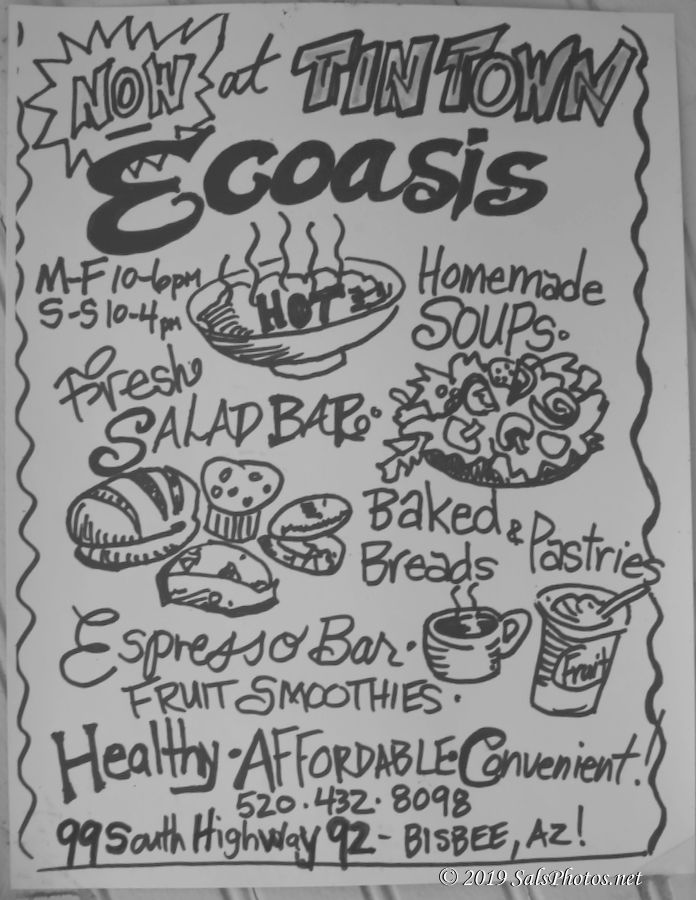 NOW at TINTOWN
Ecoasis
M-F 10-6pm
S-S 10-4pm
HOT
Homemade
SOUPS.
Fresh
SALAD BAR.
Baked & Pastries
Breads
Espresso Bar.
Fruit
FRUIT SMOOTHIES.
Healthy • AFFORDABLE • Convenient!
520.432.8098
99 South Highway 92 - BISBEE, AZ!
© 2019 SalsPhotos.net